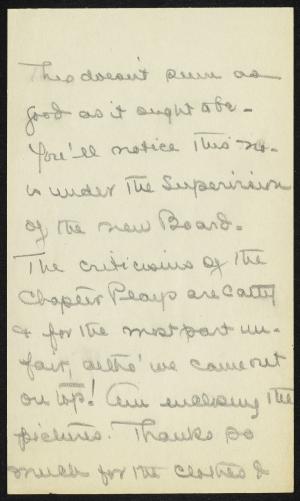 This doesn't seem as
good as it ought to be -
You'll notice this no.
is under the Supervision
of the new Board.
The criticisms of the
Chapter Plays are catty
& for the most part un-
fair, altho' we came out
on top! Am enclosing the
pictures. Thanks so
much for the clothes &